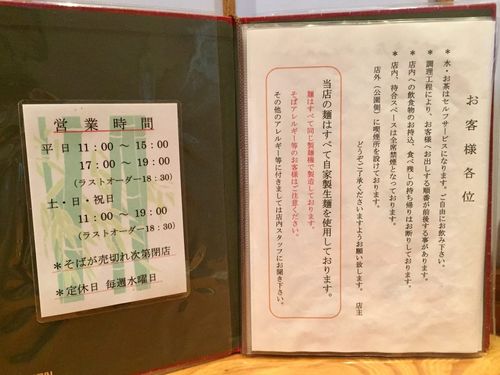 営業時間
平日 11：00 〜 15：00
17：00 〜 19：00
（ラストオーダー18：30）
土・日・祝日
11：00 〜 19：00
（ラストオーダー18：30）
＊そばが売切れ次第閉店
＊定休日 毎週水曜日
お客様各位
＊水・お茶はセルフサービスになります。ご自由にお飲み下さい。
＊調理工程により、お客様へお出しする順番が前後する事があります。
＊店内への飲食物のお持込、食べ残しの持ち帰りはお断りしております。
＊店内、待合スペースは全席禁煙となっております。
店外（公園側）に喫煙所を設けております。
どうぞご了承くださいますようお願い致します。 店主
当店の麺はすべて自家製生麺を使用しております。
麺はすべて同じ製麺機で製造しております。
そばアレルギー等のお客様はご注意ください。
その他のアレルギー等に付きましては店内スタッフにお聞き下さい。